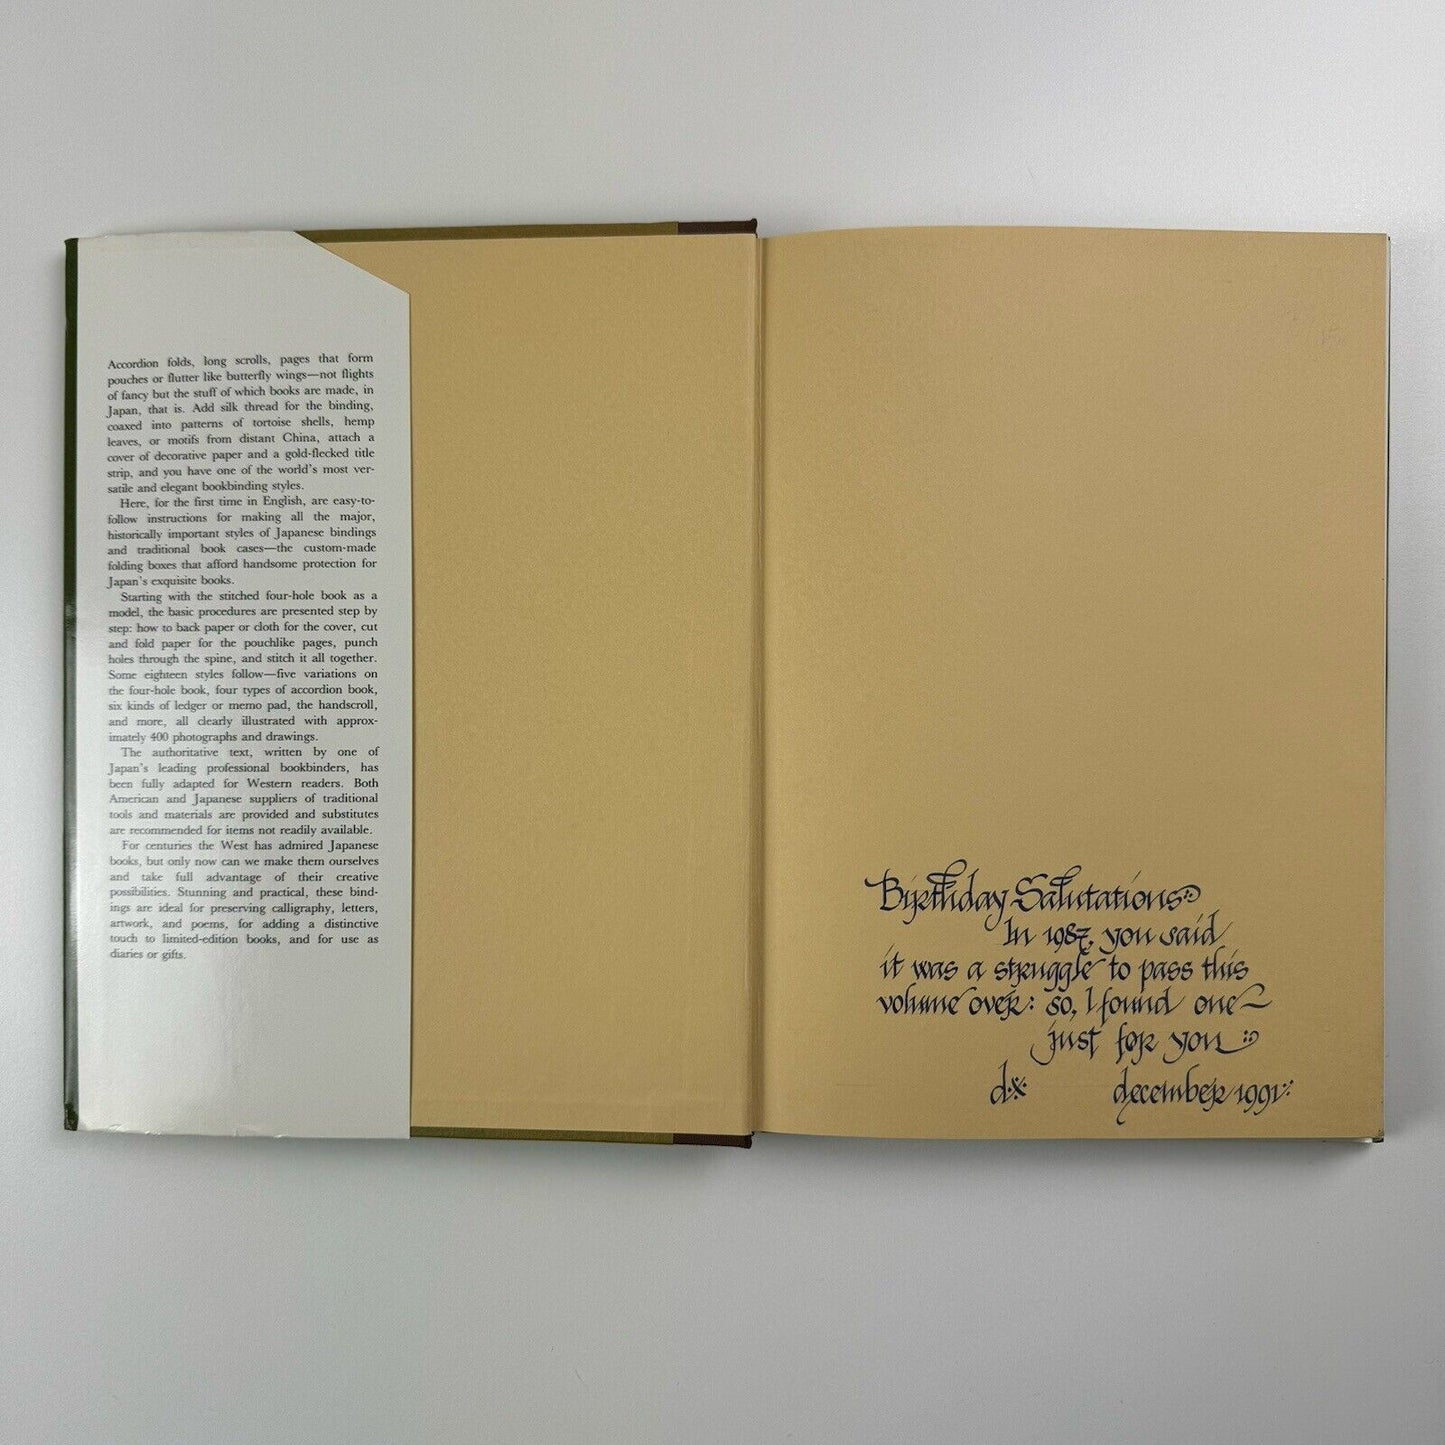 Accordion folds, long scrolls, pages that form
pouches or flutter like butterfly wings—not flights
of fancy but the stuff of which books are made, in
Japan, that is. Add silk thread for the binding,
coaxed into patterns of tortoise shells, hemp
leaves, or motifs from distant China, attach a
cover of decorative paper and a gold-flecked title
strip, and you have one of the world's most ver-
satile and elegant bookbinding styles.
Here, for the first time in English, are easy-to-
follow instructions for making all the major,
historically important styles of Japanese bindings
and traditional book cases—the custom-made
folding boxes that afford handsome protection for
Japan's exquisite books.
Starting with the stitched four-hole book as a
model, the basic procedures are presented step by
step: how to back paper or cloth for the cover, cut
and fold paper for the pouchlike pages, punch
holes through the spine, and stitch it all together.
Some eighteen styles follow—five variations on
the four-hole book, four types of accordion book,
six kinds of ledger or memo pad, the handscroll,
and more, all clearly illustrated with approx-
imately 400 photographs and drawings.
The authoritative text, written by one of
Japan's leading professional bookbinders, has
been fully adapted for Western readers. Both
American and Japanese suppliers of traditional
tools and materials are provided and substitutes
are recommended for items not readily available.
For centuries the West has admired Japanese
books, but only now can we make them ourselves
and take full advantage of their creative
possibilities. Stunning and practical, these bind-
ings are ideal for preserving calligraphy, letters,
artwork, and poems, for adding a distinctive
touch to limited-edition books, and for use as
diaries or gifts.
Birthday Salutations
In 1987, you said
it was a struggle to pass this
volume over: so, I found one~
just for you
d.x. december 1991